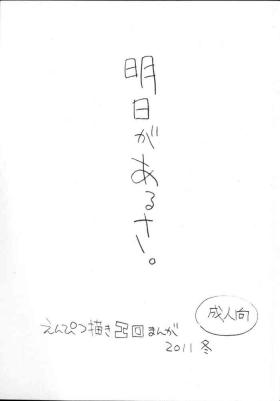 明日があるさ。
成人向
えんぴつ描き回まんが
2011 冬